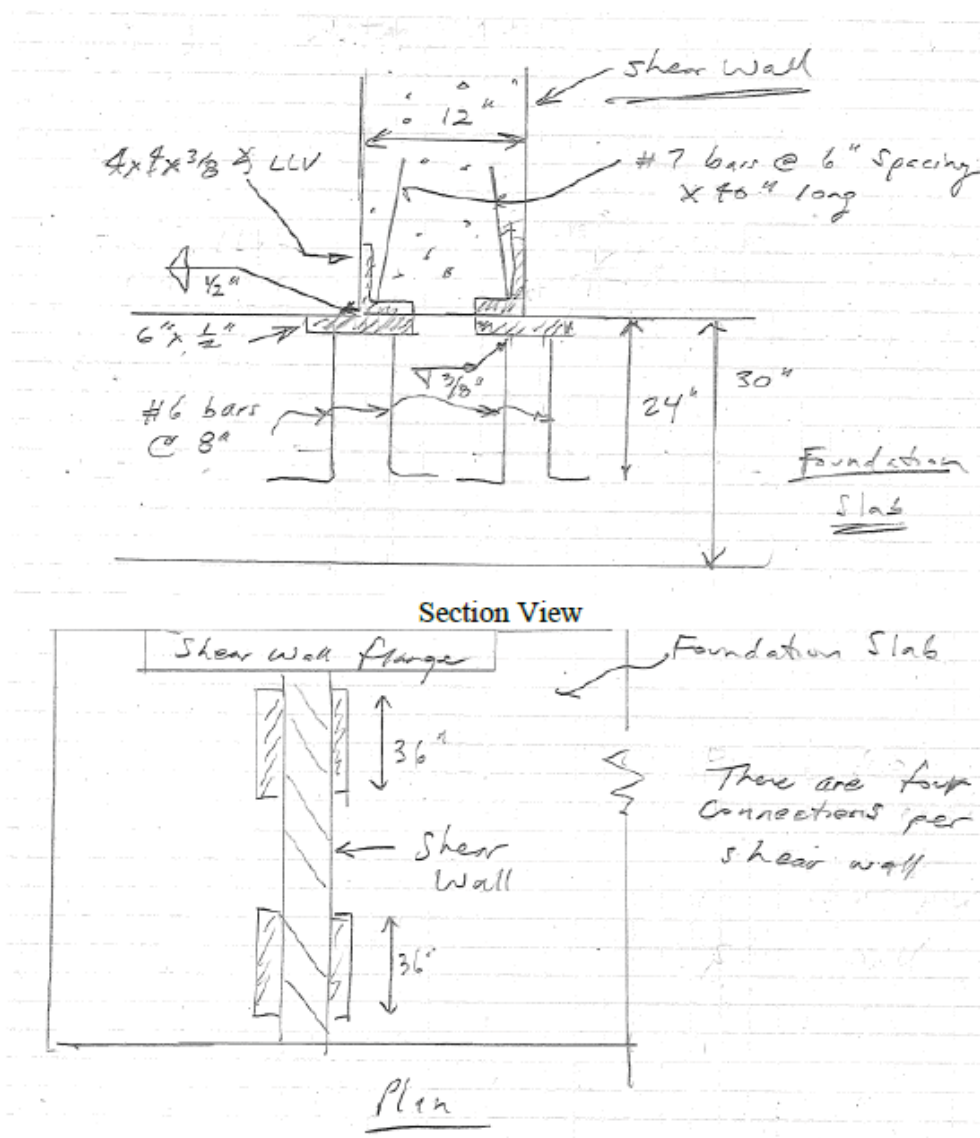 Shear Wall
12"
4x4x3/8 ∠ LLV
#7 bars @ 6" Spacing
x 40" long
1/2"
6" x 1/2"
3/8"
24"
30"
#6 bars
@ 8"
Foundation
Slab
Section View
Shear wall flange
Foundation Slab
36"
There are four
connections per
shear wall
Shear
Wall
36"
Plan